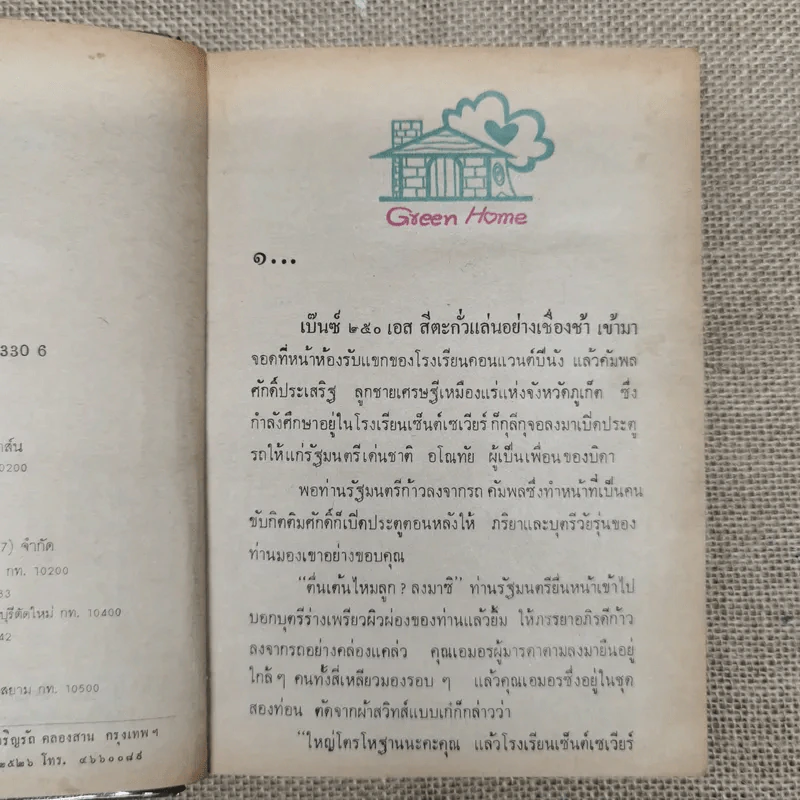 330 6
10200
7) จำกัด
กท. 10200
33
บุรีตัดใหม่ กท. 10400
42
สยาม กท. 10500
คลองสาน กรุงเทพฯ
๒๕๒๖ โทร. ๔๖๖๐๐๘๙
Green Home
๑...
เบ๊นซ์ ๒๕๐ เอส สีตะกั่วแล่นอย่างเชื่องช้า เข้ามา
จอดที่หน้าห้องรับแขกของโรงเรียนคอนแวนต์ปีนัง แล้วคัมพล
ศักดิ์ประเสริฐ ลูกชายเศรษฐีเหมืองแร่แห่งจังหวัดภูเก็ต ซึ่ง
กำลังศึกษาอยู่ในโรงเรียนเซ็นต์เซเวียร์ ก็กุลีกุจอลงมาเปิดประตู
รถให้แก่รัฐมนตรีเด่นชาติ อโณทัย ผู้เป็นเพื่อนของบิดา
พอท่านรัฐมนตรีก้าวลงจากรถ คัมพลซึ่งทำหน้าที่เป็นคน
ขับกิตติมศักดิ์ก็เปิดประตูตอนหลังให้ ภริยาและบุตรีวัยรุ่นของ
ท่านมองเขาอย่างขอบคุณ
“ตื่นเต้นไหมลูก ? ลงมาซิ” ท่านรัฐมนตรียื่นหน้าเข้าไป
บอกบุตรีร่างเพรียวผิวผ่องของท่านแล้วยิ้ม ให้ภรรยาอภิรดีก้าว
ลงจากรถอย่างคล่องแคล่ว คุณเอมอรผู้มารดาตามลงมายืนอยู่
ใกล้ ๆ คนทั้งสี่เหลียวมองรอบ ๆ แล้วคุณเอมอรซึ่งอยู่ในชุด
สองท่อน ตัดจากผ้าสวิทส์แบบเก๋ก็กล่าวว่า
“ใหญ่โตรโหฐานนะคะคุณ แล้วโรงเรียนเซ็นต์เซเวียร์